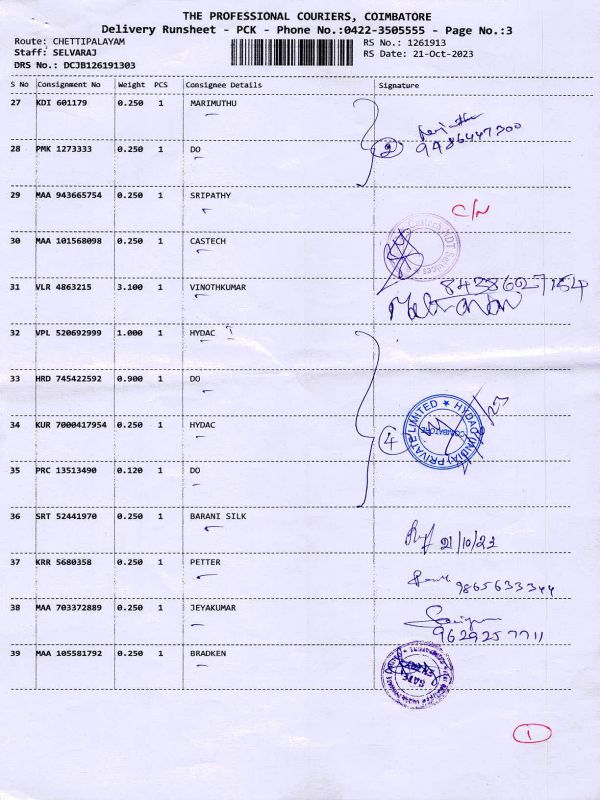 THE PROFESSIONAL COURIERS, COIMBATORE
Delivery Runsheet - PCK - Phone No.:0422-3505555 - Page No.:3
Route: CHETTIPALAYAM
RS No.: 1261913
Staff: SELVARAJ
RS Date: 21-Oct-2023
DRS No.: DCJB126191303
S No Consignment No Weight PCS Consignee Details Signature
27 KDI 601179 0.250 1 MARIMUTHU
9486447300
28 PMK 1273333 0.250 1 DO
2
29 MAA 943665754 0.250 1 SRIPATHY
C/N
30 MAA 101568098 0.250 1 CASTECH
Castech NDT Services
31 VLR 4863215 3.100 1 VINOTHKUMAR
84386027154
32 VPL 520692999 1.000 1 HYDAC
33 HRD 745422592 0.900 1 DO
34 KUR 7000417954 0.250 1 HYDAC
4
HYDAC (INDIA) PRIVATE LIMITED
COIMBATORE
35 PRC 13513490 0.120 1 DO
36 SRT 52441970 0.250 1 BARANI SILK
21/10/23
37 KRR 5680358 0.250 1 PETTER
9865633344
38 MAA 703372889 0.250 1 JEYAKUMAR
9629257711
39 MAA 105581792 0.250 1 BRADKEN
1